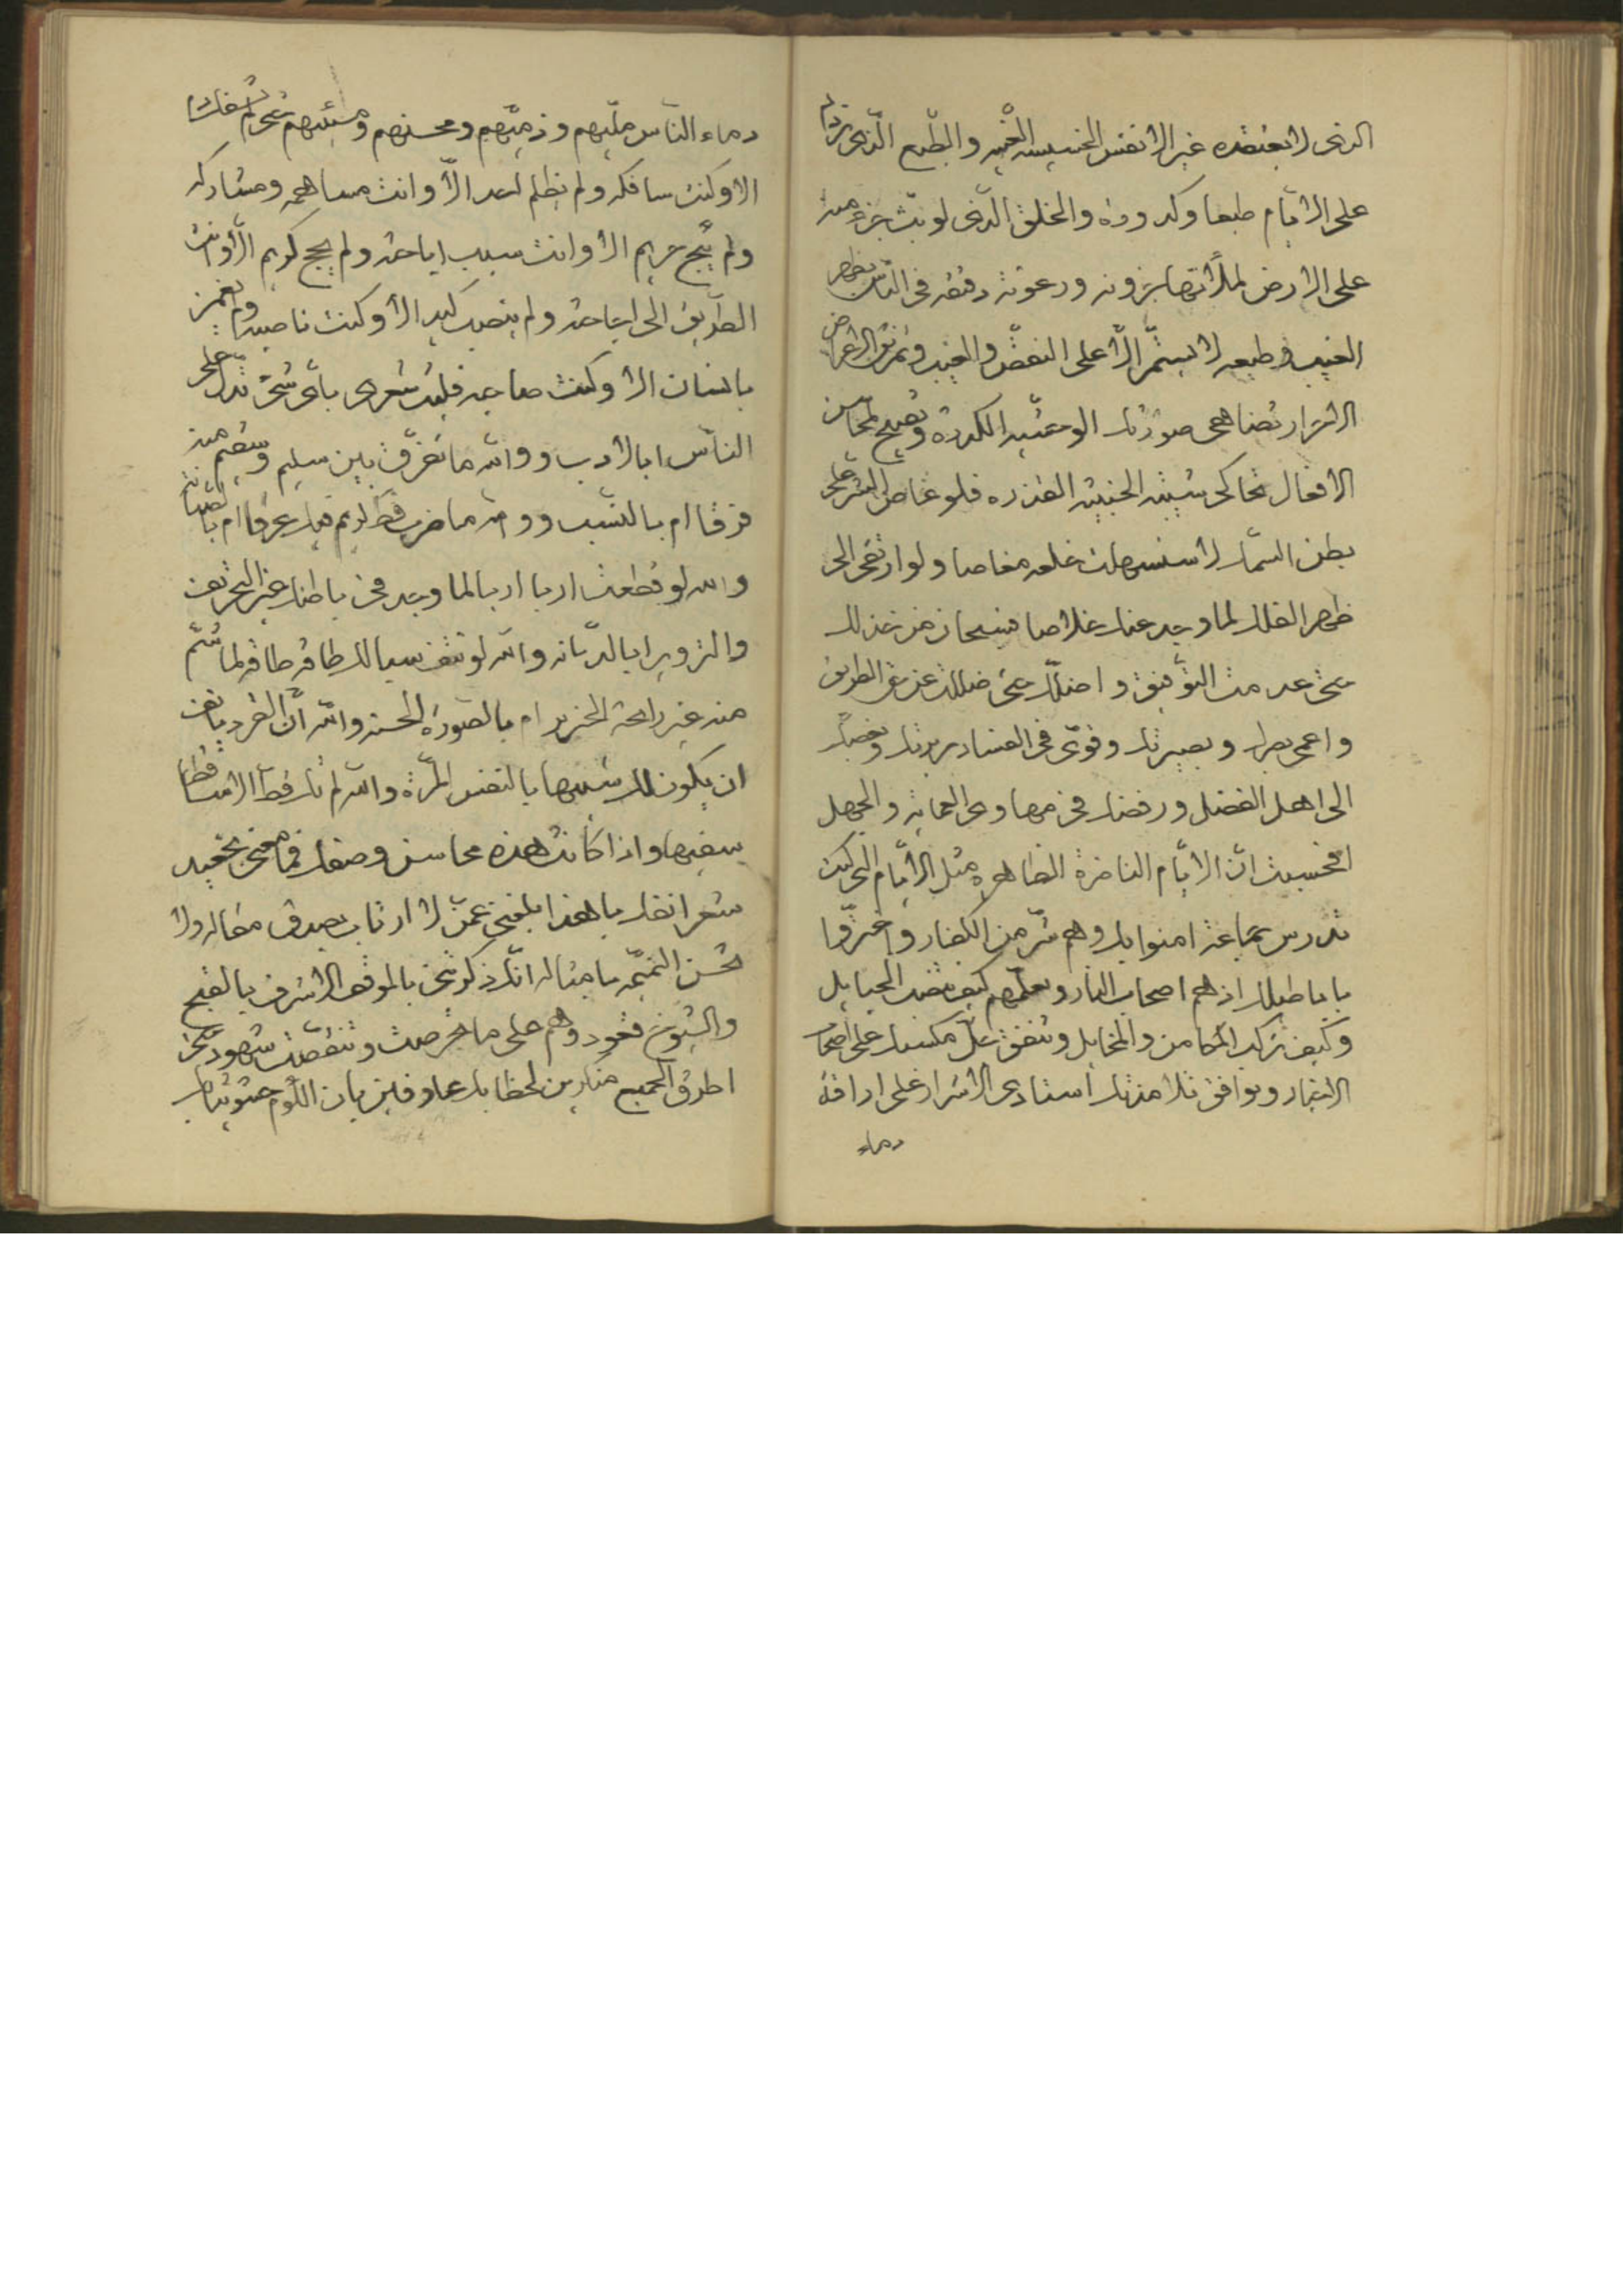 الذى لا يعتقده غير الانفس الخسيسه الغبيه والطبع الذى يزداد
على الايام طبعا وكدورة والخلق الذى لو بث جزء منه
على الارض لملأتها حزونه ورعونة دقته فى الناس بظهر
الغيب وطبعه لا يستمر الا على النقض والعيب وتمزيق الاعراض
الاشرار تضاهى صورتك الوحشيه الكدرة وتقبيح لمحاسن
الافعال تحاكى شيبتك الخبيثة القذره فلو غاص البشر على
بطن السمك لاستسهلت عنه مغاصا ولو ارتقى الى
ظهر الفلك لما وجد عنك خلاصا فسبحان من خذلك
حتى عدمت التوفيق واضلك حتى ضللت عن الطريق
واعمى بصرك وبصيرتك وقوى فى الفساد سريرتك
الى اهل الفضل ورفضك فى مهاوى العمايه والجهل
افحسبت ان الايام الناضرة الظاهره مثل الايام التى كنت
تدرس جماعة امنوا بك وهم شر من الكفار واغتروا
باباطيلك اذ هم اصحاب النار وتعلمهم كيف تنصب الحبايل
وكيف تركب المكامن والمخايل وتنفق كل مكسبك على اصحاب
الانبار ويوافق تلامذتك استاذى الاشرار على اراقة
دماء
دماء الناس مليهم وذميهم ومحسنهم ومسيئهم حتى لم تسفك دما
الا وكنت سافكه ولم يظلم احد الا وانت مساهمه ومشاركه
ولم يبح حريم الا وانت سبب اباحته ولم يجح كريم الا وانت
الطريق الى اجاحته ولم ينصب كيد الا وكنت ناصبه ولم يغمز
بانسان الا وكنت صاحبه فليت شعرى باى شئ تدل على
الناس ابالادب ووالله ما تفرق بين سليم وسقيم منه
فرقا ام بالنسب ووالله ما ضرب قط كريم فيك عرقا ام بالصيانة
والله لو قطعت اربا اربا لما وجد فى باطنك غير التحريف
والتزوير ابالديانه والله لو نتف سبالك طاقه طاقه لما شم
منه غير رايحة الخنزير ام بالصورة الحسنه والله ان القرد يانف
ان يكون لك شبيها بالنفس المرة والله لم تك قط الا ساقطا
سفيها واذا كانت هذه محاسن وصفك فما معنى تحقيد
شعر انفك يا هذا بلغنى عمن لا ارتاب بصدق مقاله ولا
تحسن النميمه بامثاله انك ذكرتنى بالموقف الاشرف بالقبيح
والشيوخ قعود وهم على ما خرصت وتنقصت شهود حتى
اطرق الجميع منكرين لخطابك عارفين بان اللؤم حشو ثيابك